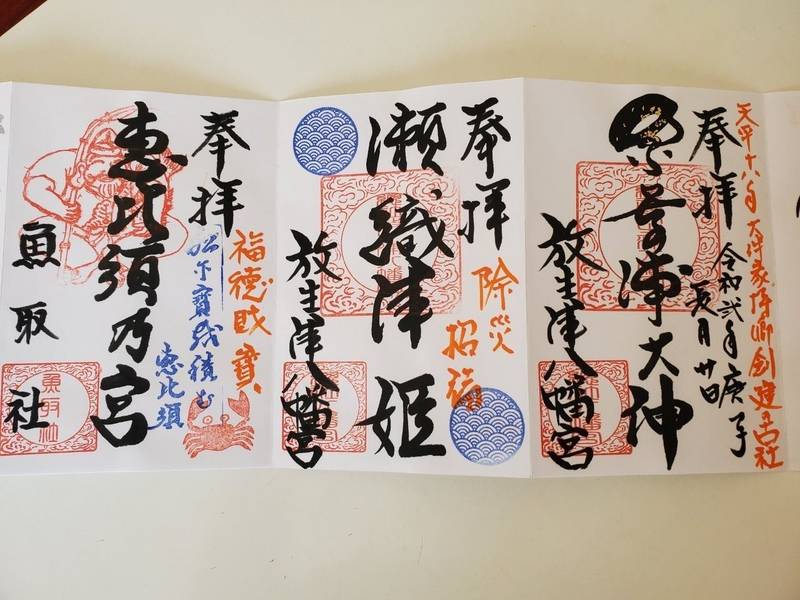 天平十八年 大伴家持卿創建古社
令和弐年庚子
奉拝
奈呉浦大神
放生津八幡宮
奉拝
除災
招福
瀬織津姫
放生津八幡宮
奉拝
福徳財寳
恵比須
恵比須乃宮
魚取社